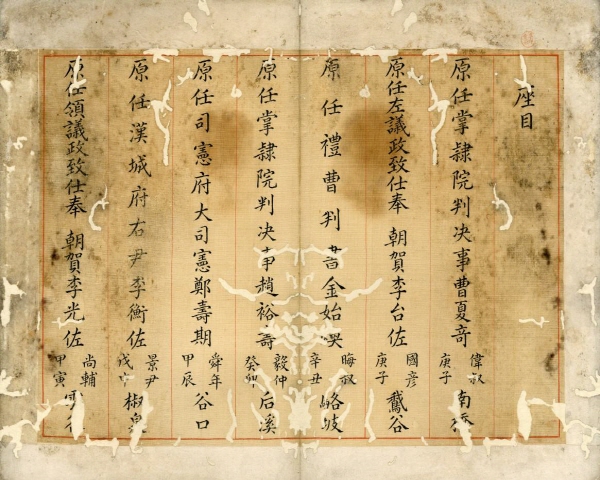 座目
原任掌隸院判决事曹夏奇 偉叔 庚子 南
原任左議政致仕奉 朝賀李台佐 國彦 庚子 鵞谷
原任禮曹判書金始 晦叔 辛丑 岐
原任掌隸院判决事趙裕壽 毅仲 癸卯 后溪
原任司憲府大司憲鄭壽期 舜年 甲辰 谷口
原任漢城府右尹李衡佐 景尹 戊申 椒泉
原任領議政致仕奉 朝賀李光佐 尚輔 甲寅 雲